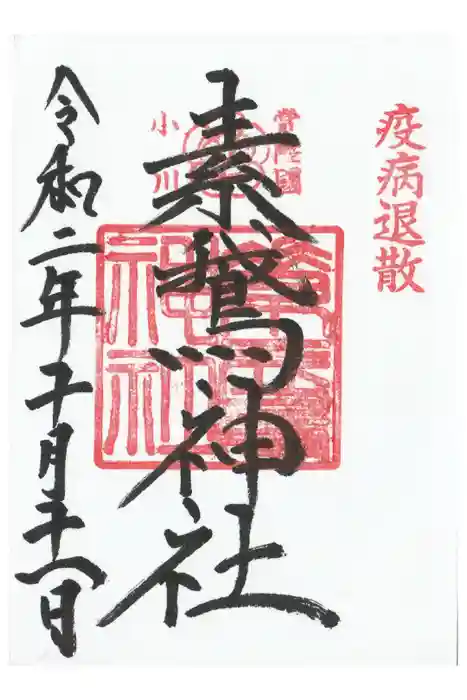 疫病退散
常陸國
小川
素鵞神社
令和二年
月
日